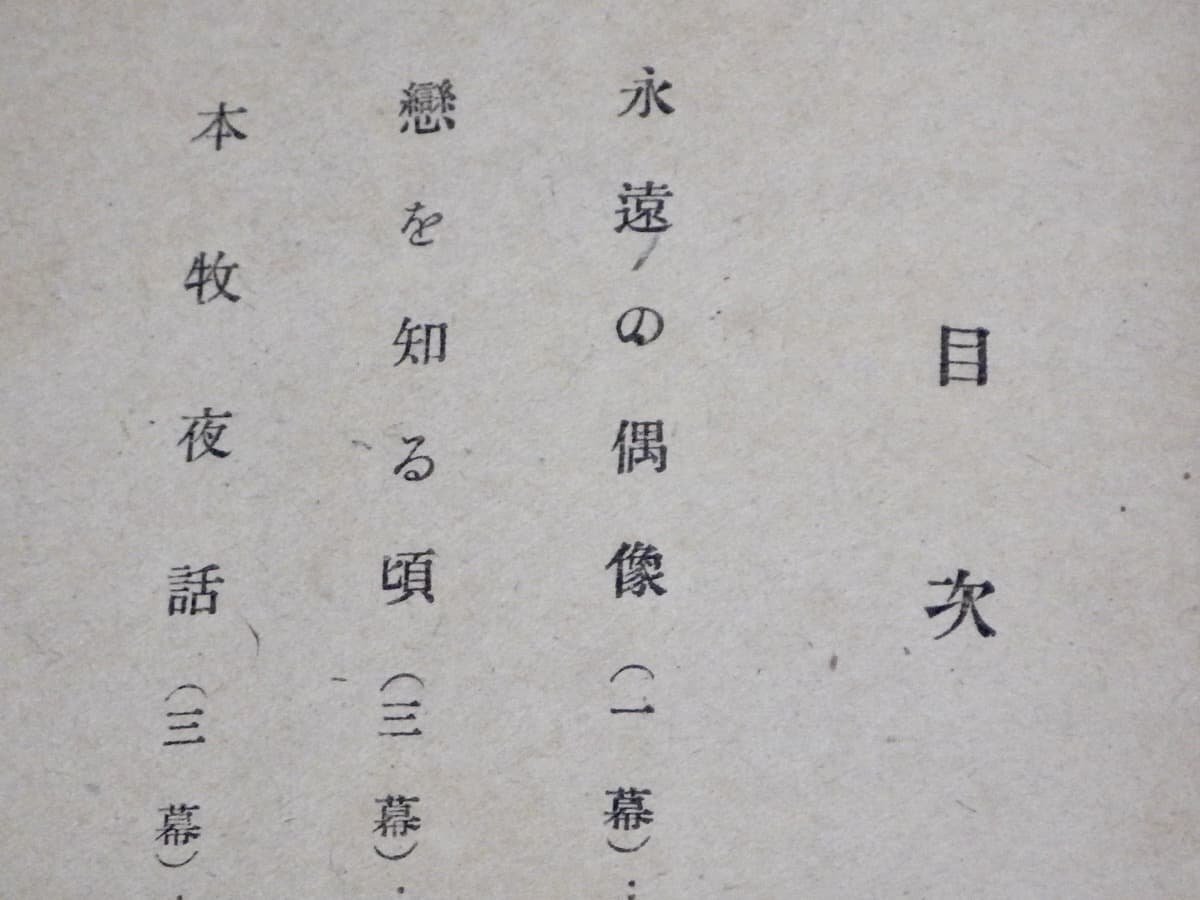 目次
永遠の偶像（一幕）
戀を知る頃（三幕）
本牧夜話（三幕）